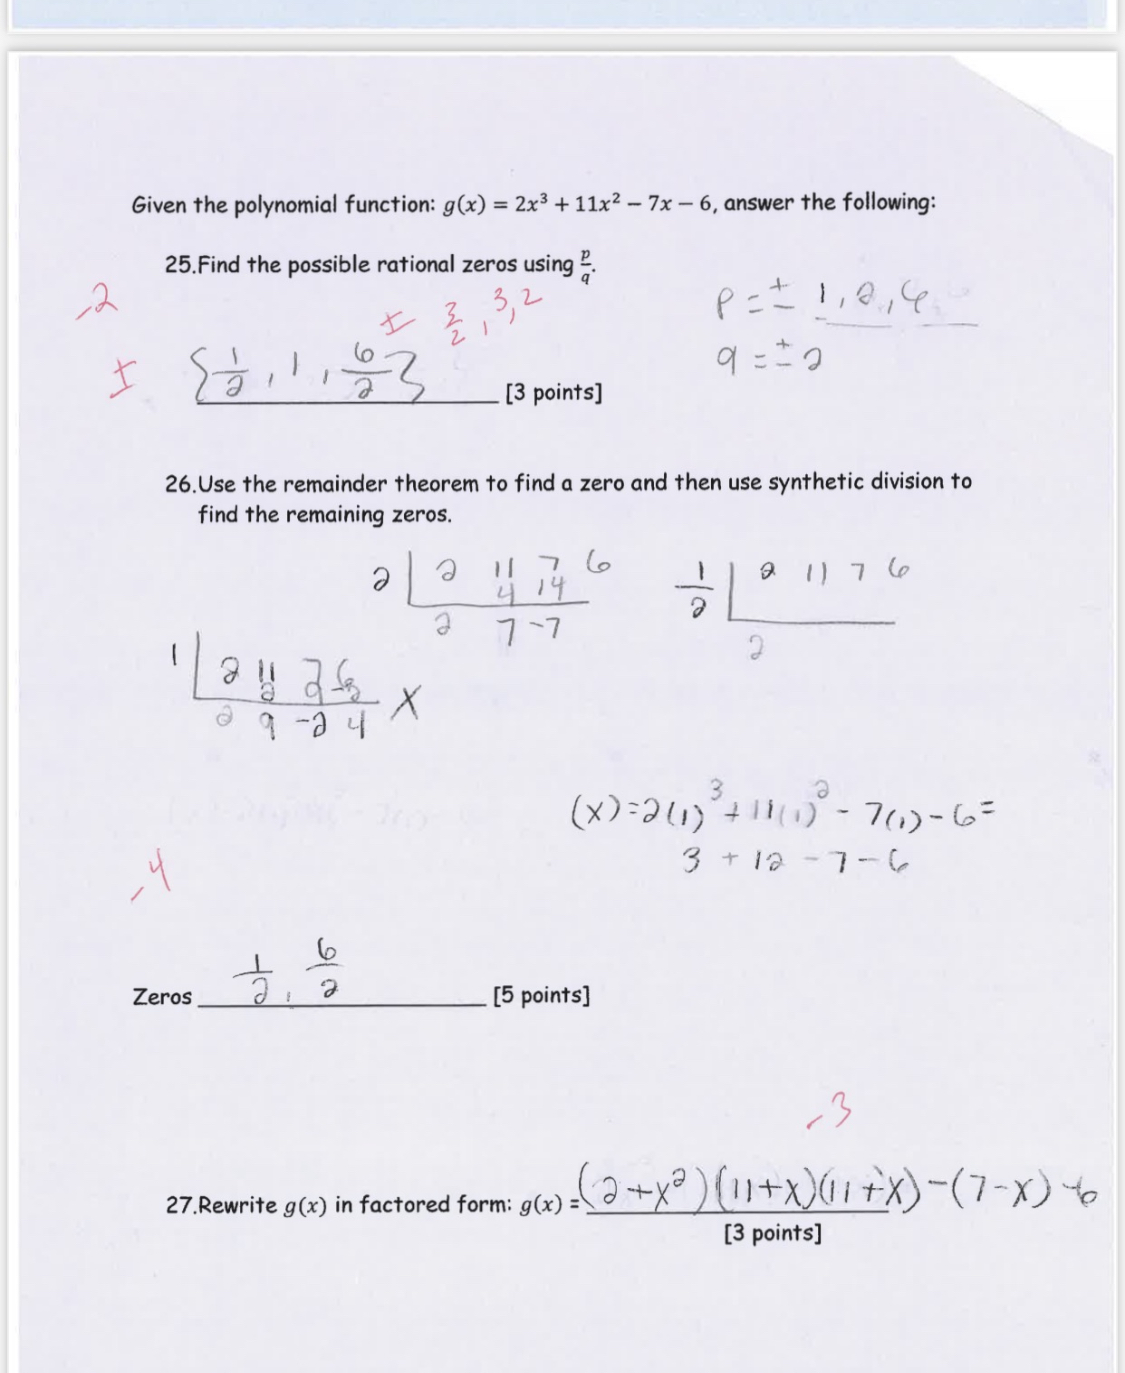 Given the polynomial function: g(x) = 2x³ + 11x² − 7x − 6, answer the following:
25.Find the possible rational zeros using p/q.
-2
± 3/2, 3, 2
p = ± 1, 2, 6
q = ± 2
± {1/2, 1, 6/2} [3 points]
26.Use the remainder theorem to find a zero and then use synthetic division to
find the remaining zeros.
2 | 2 11 7 6
4 14
2 7 -7
1/2 | 2 11 7 6
2
1 | 2 11
2 9 -2 4 X
(x) = 2(1)³ + 11(1)² - 7(1) - 6 =
3 + 12 - 7 - 6
-4
Zeros 1/2, 6/2 [5 points]
-3
27.Rewrite g(x) in factored form: g(x) = (2+x²)(11+x)(11+x)-(7-x)-6
[3 points]